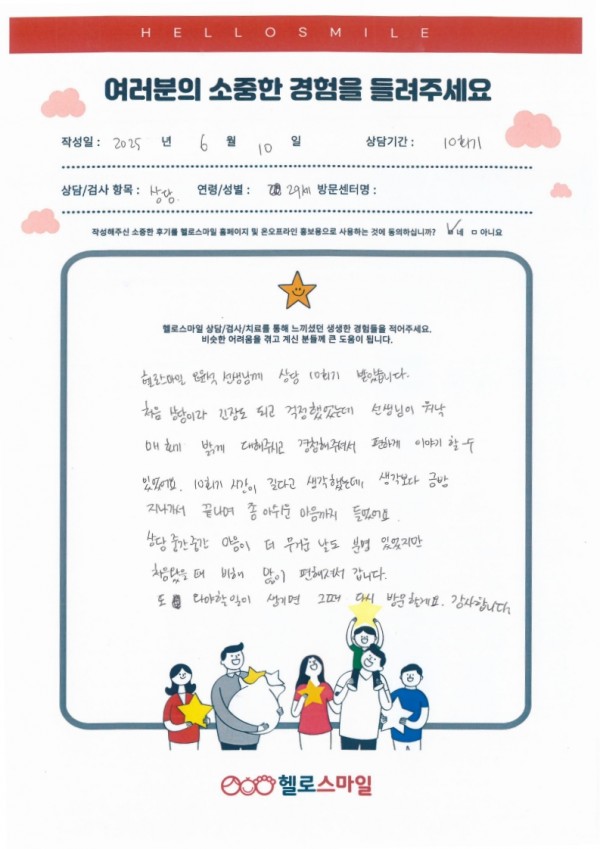 HELLOSMILE
여러분의 소중한 경험을 들려주세요
작성일 : 2025 년 6 월 10 일 상담기간 : 10회기
상담/검사 항목 : 상담. 연령/성별 : 29세 방문센터명 :
작성해주신 소중한 후기를 헬로스마일 홈페이지 및 온오프라인 홍보용으로 사용하는 것에 동의하십니까? ☑ 네 ㅁ 아니요
헬로스마일 상담/검사/치료를 통해 느끼셨던 생생한 경험들을 적어주세요.
비슷한 어려움을 겪고 계신 분들께 큰 도움이 됩니다.
헬로스마일 선생님께 상담 10회기 받았습니다.
처음 상담이라 긴장도 되고 걱정했었는데 선생님이 워낙
매 회기 밝게 대해주시고 경청해주셔서 편하게 이야기 할 수
있었어요. 10회기 시간이 길다고 생각했는데 생각보다 금방
지나가서 끝나며 좀 아쉬운 마음까지 들었어요.
상담 중간중간 마음이 더 무거운 날도 분명 있었지만
처음왔을 때 비해 많이 편해져서 갑니다.
또 와야할일이 생기면 그때 다시 방문할게요. 감사합니다
헬로스마일